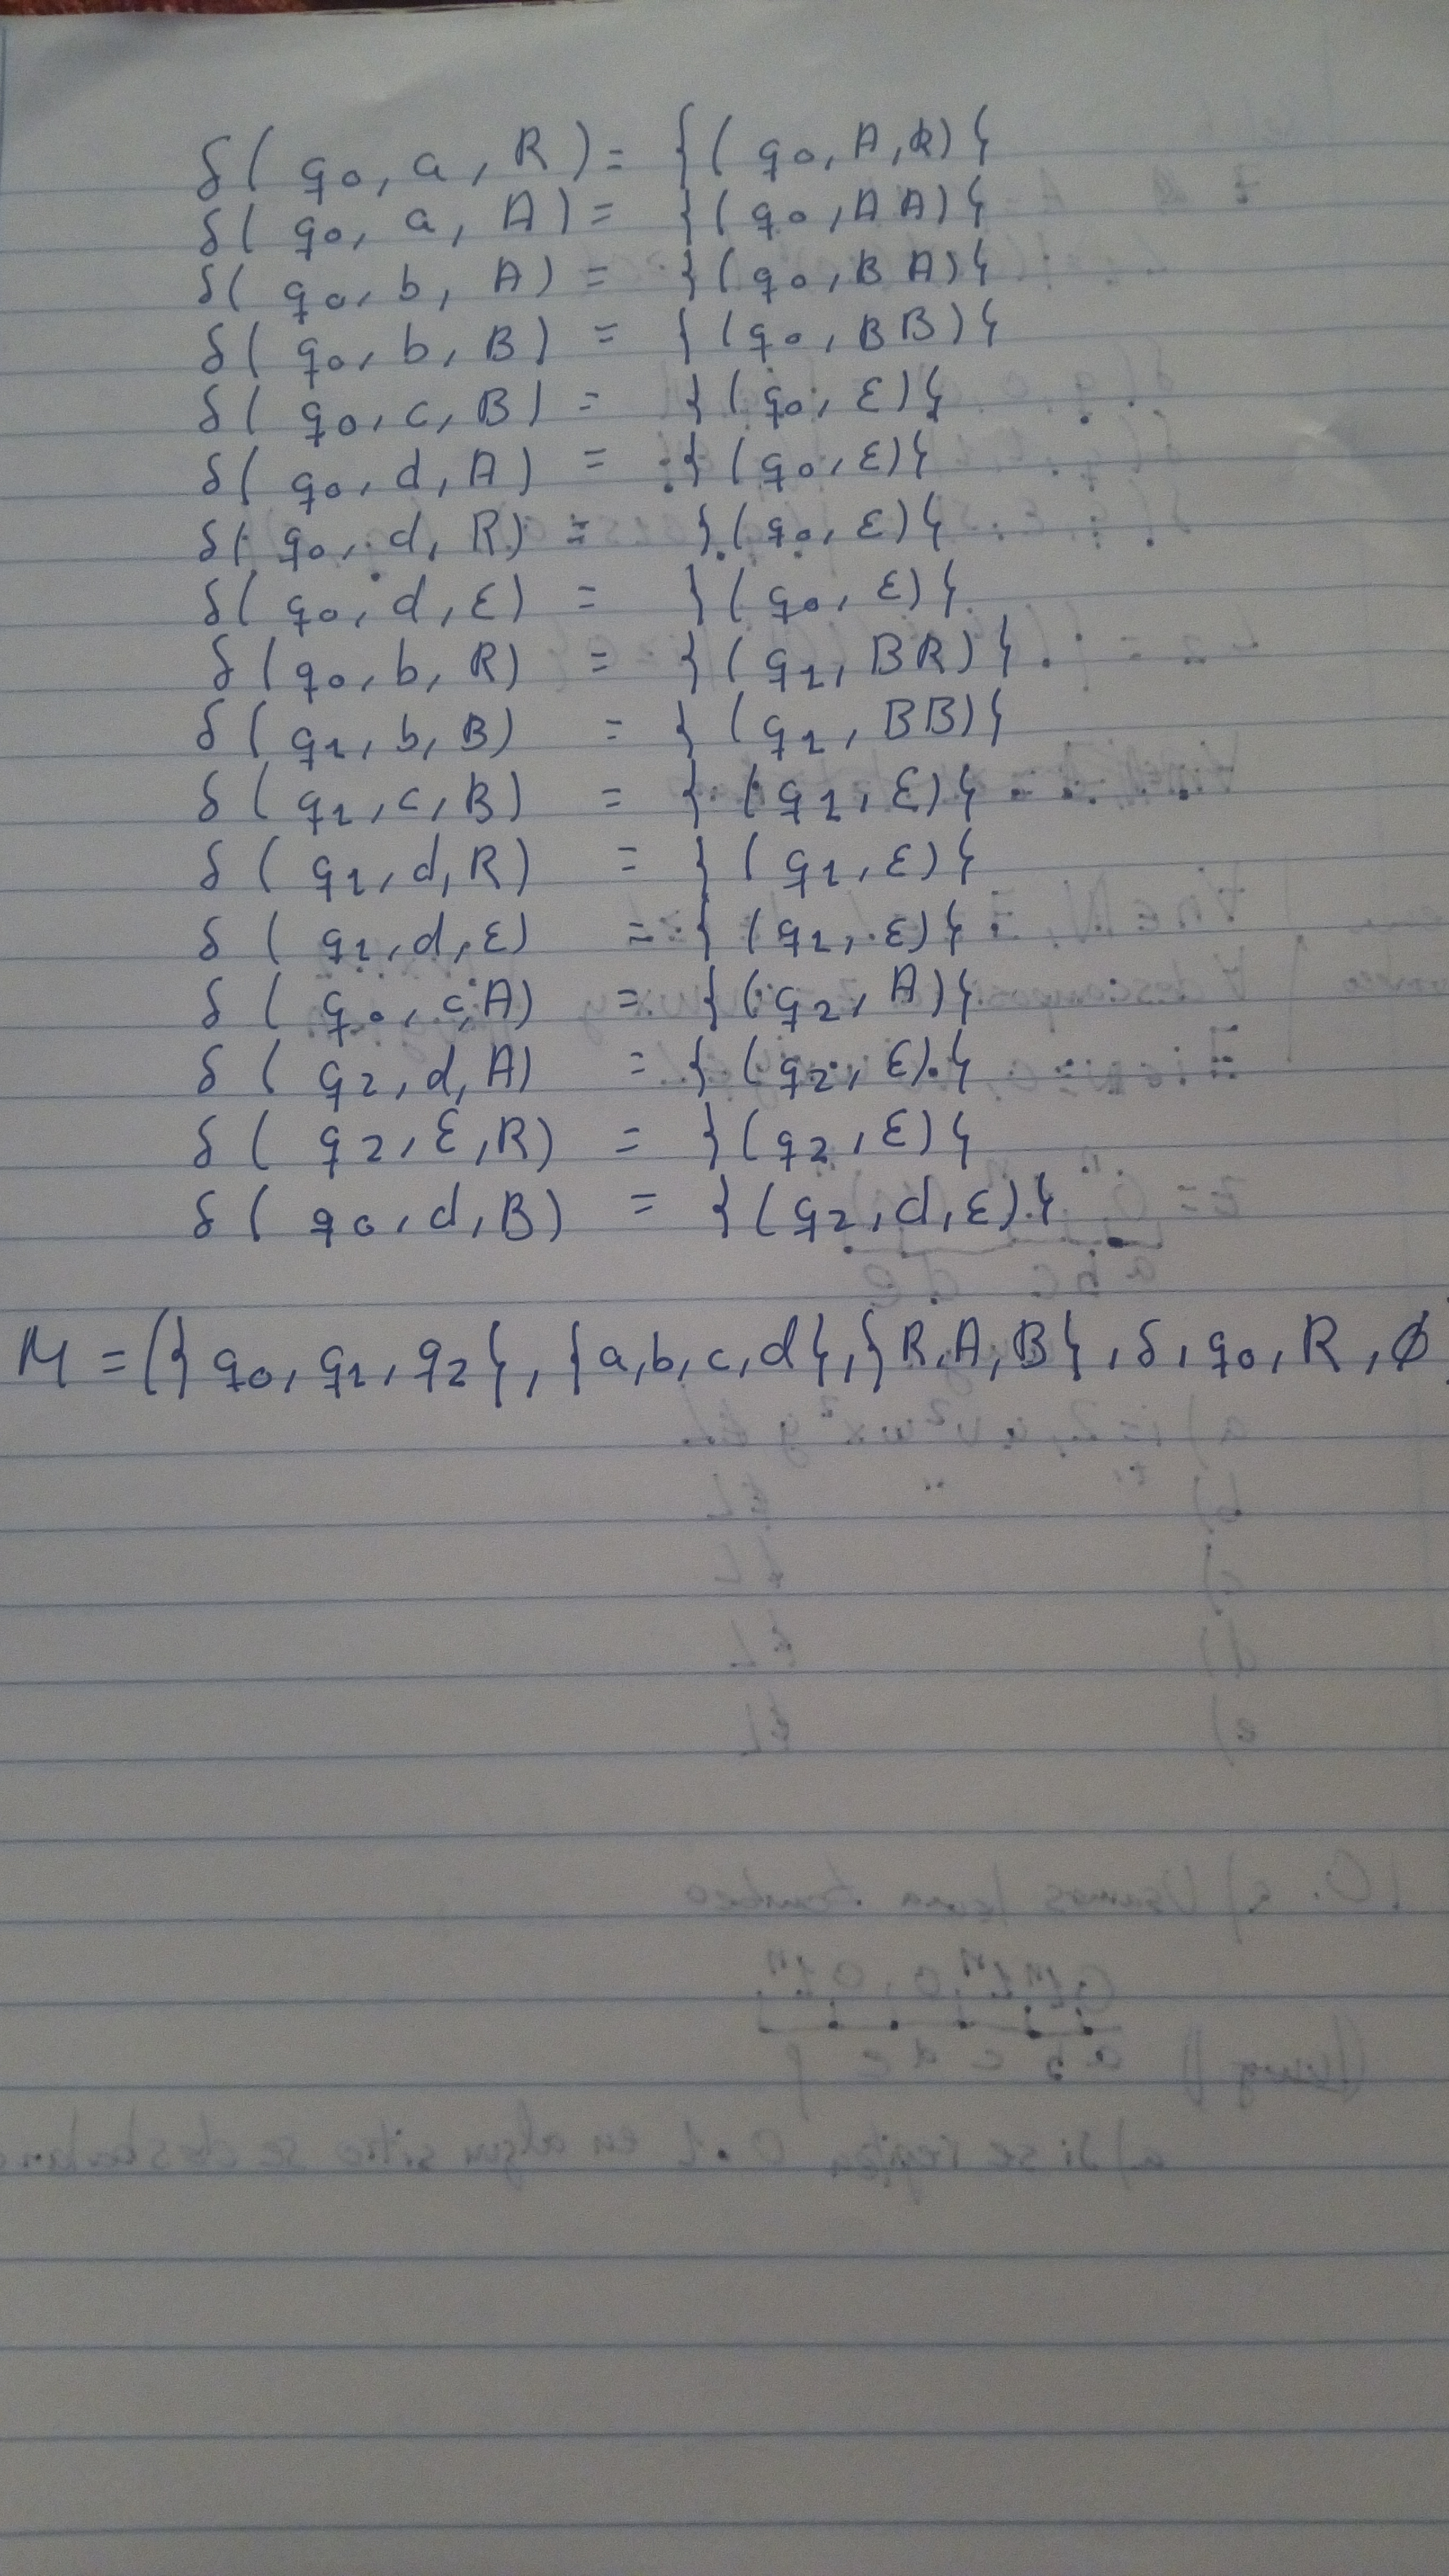 δ( q0, a, R ) = {( q0, A, R)}
δ( q0, a, A ) = {( q0, A A)}
δ( q0, b, A ) = {( q0, B A)}
δ( q0, b, B ) = {( q0, BB)}
δ( q0, c, B ) = {( q0, ε)}
δ( q0, d, A ) = {( q0, ε)}
δ( q0, d, R ) = {( q0, ε)}
δ( q0, d, ε ) = {( q0, ε)}
δ( q0, b, R ) = {( q1, BR)}
δ( q1, b, B ) = {( q1, BB)}
δ( q1, c, B ) = {( q1, ε)}
δ( q1, d, R ) = {( q1, ε)}
δ( q1, d, ε ) = {( q1, ε)}
δ( q0, c, A ) = {( q2, A)}
δ( q2, d, A ) = {( q2, ε)}
δ( q2, ε, R ) = {( q2, ε)}
δ( q0, d, B ) = {( q2, d, ε)}
M = ({ q0, q1, q2 }, { a, b, c, d }, { R, A, B }, δ, q0, R, ∅